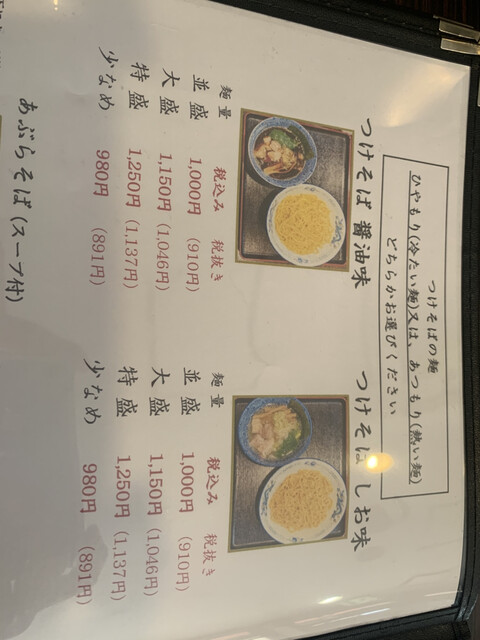 つけそばの麺
ひやもり(冷たい麺)又は、あつもり(熱い麺)
どちらかお選びください
つけそば 醤油味
麺量 税込み 税抜き
並盛 1,000円 (910円)
大盛 1,150円 (1,046円)
特盛 1,250円 (1,137円)
少なめ 980円 (891円)
つけそば しお味
麺量 税込み 税抜き
並盛 1,000円 (910円)
大盛 1,150円 (1,046円)
特盛 1,250円 (1,137円)
少なめ 980円 (891円)
あぶらそば (スープ付)